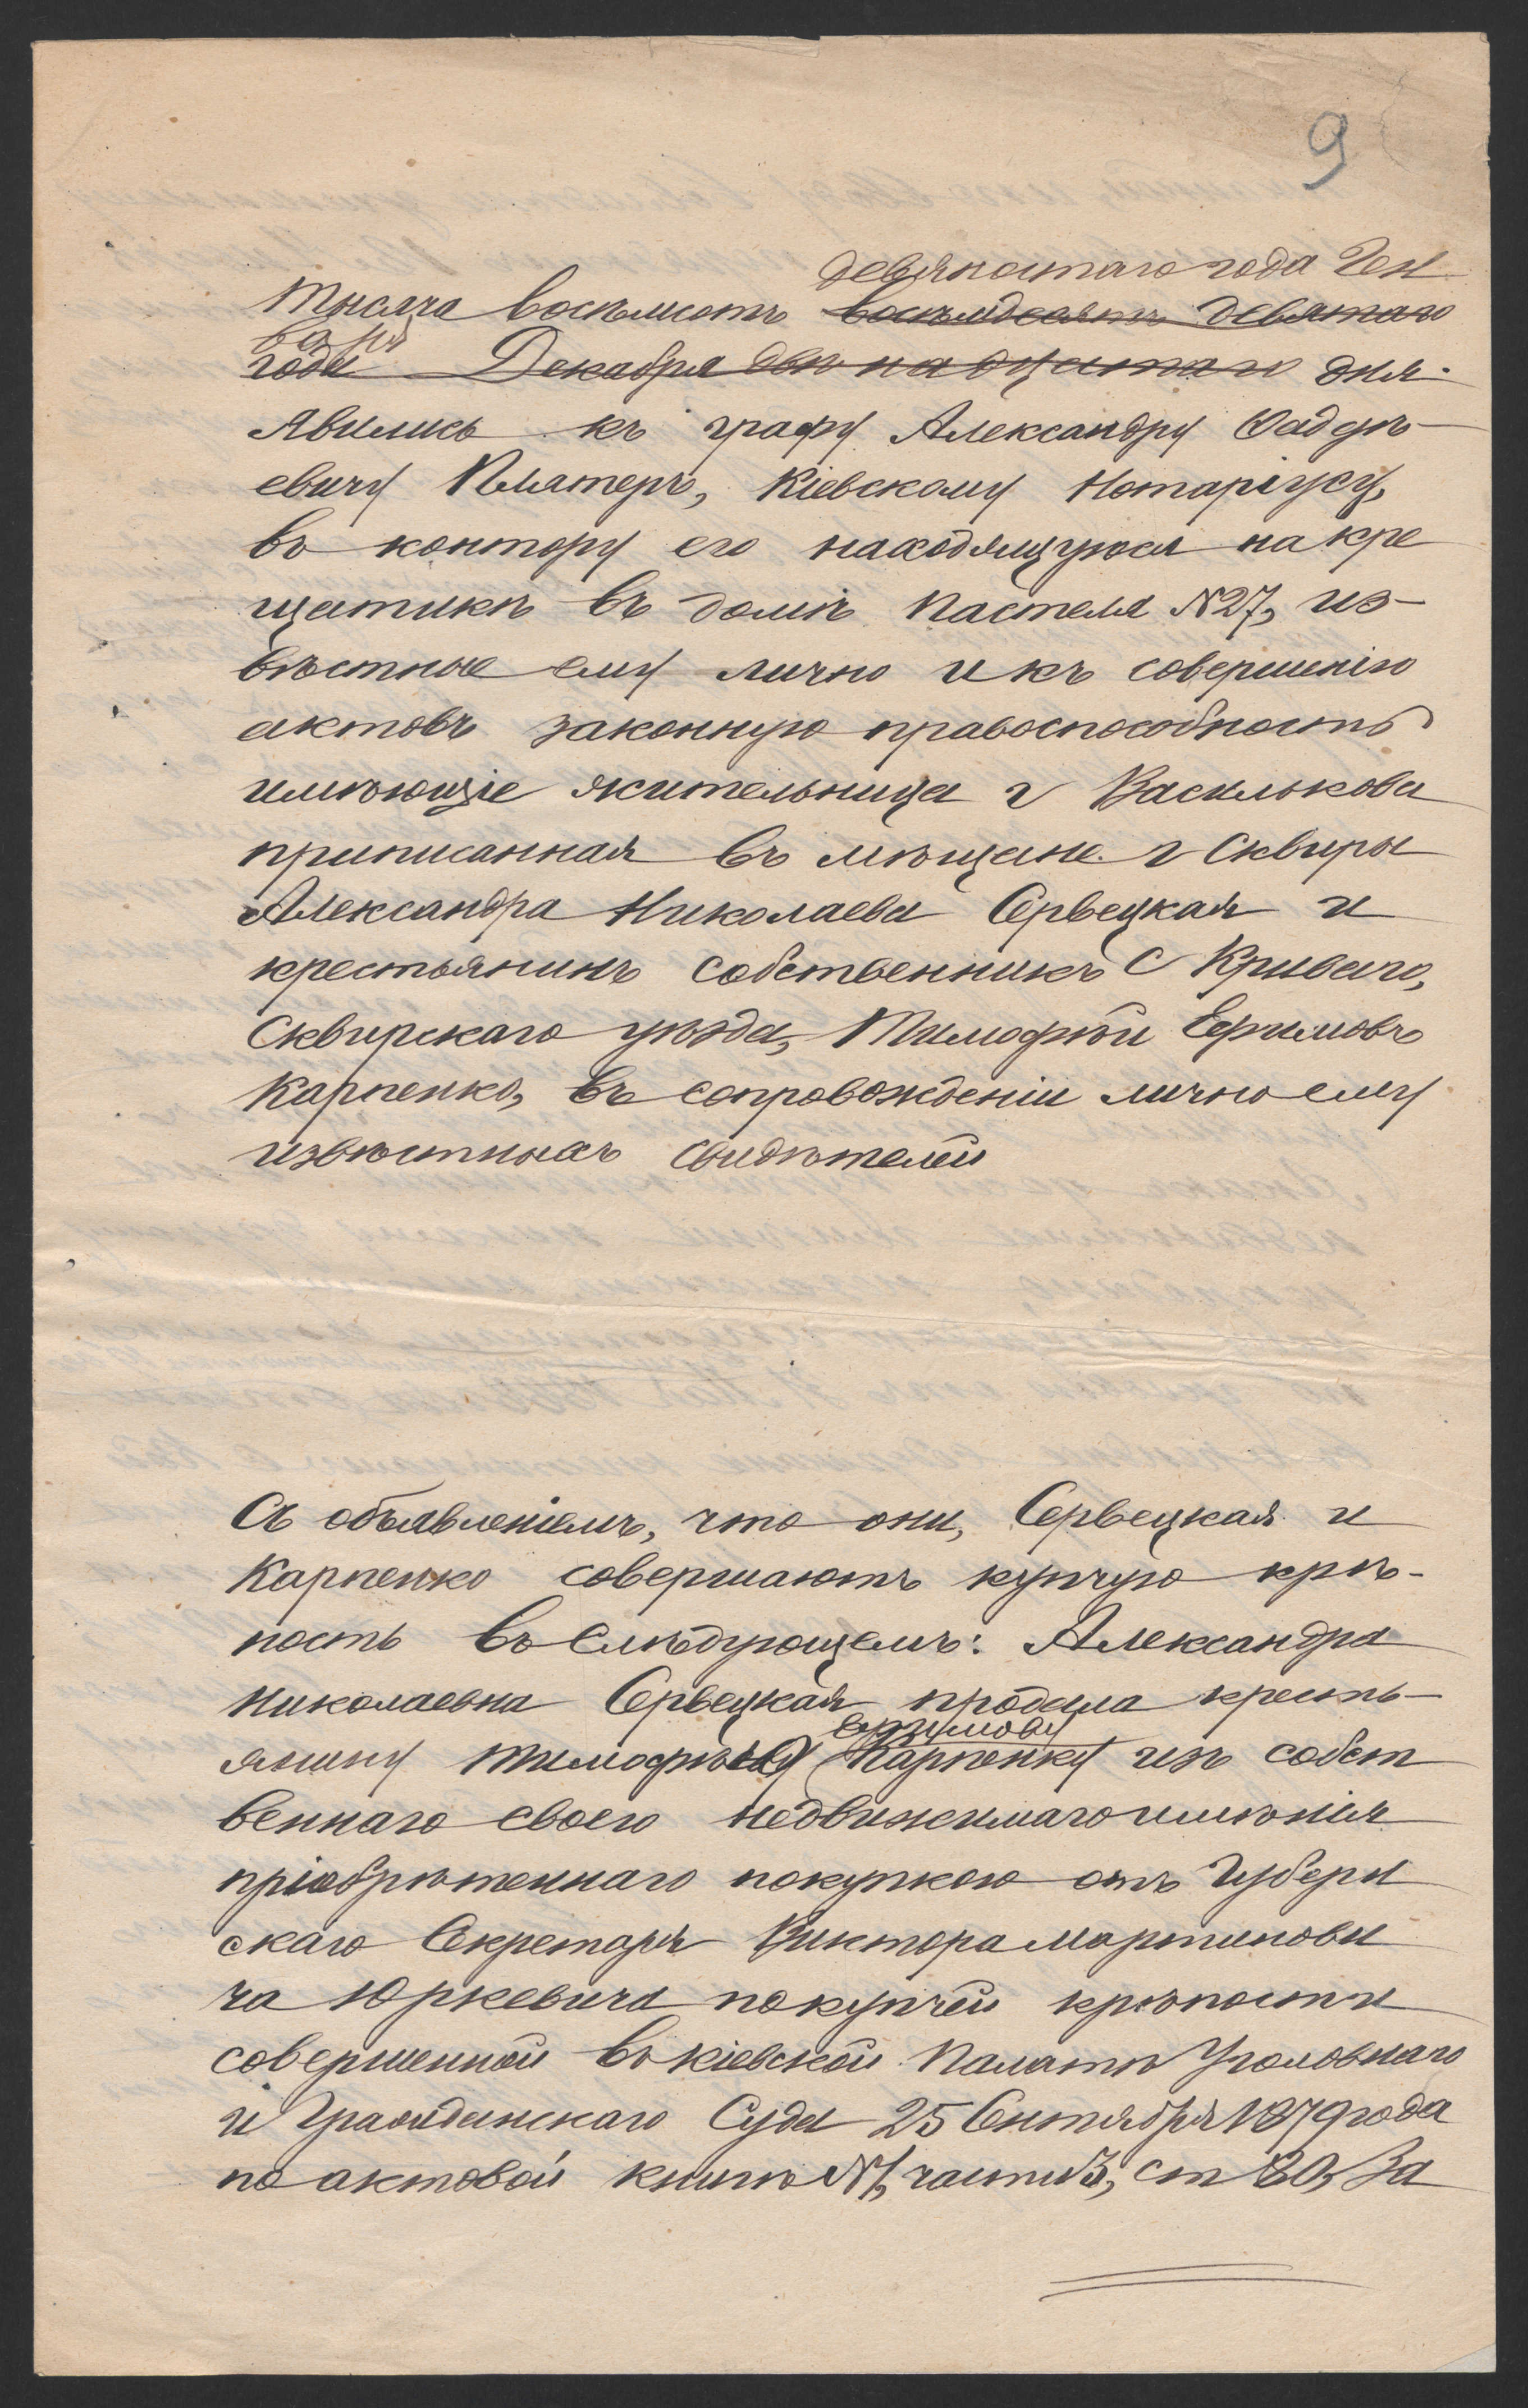 9
девяностаго года Ген
Тысяча восемьсотъ восемьдесятъ девятаго
варя
года Декабря двѣнадцатаго дня
явились къ графу Александру Фаддѣ-
евичу Платеръ, Кіевскому Нотаріусу,
въ контору его находящуюся на кре
щатикѣ въ домѣ Пастеля №27, из-
вѣстные ему лично и къ совершенію
актовъ законную правоспособность
имѣющіе жительница г Василькова
приписанная въ мѣщане г Сквиры
Александра Николаева Сервецкая и
крестьянинъ собственникъ С Криваго,
Сквирскаго уѣзда, Тимофѣй Ефимовъ
Карпенко, въ сопровожденіи лично ему
извѣстныхъ свидѣтелей
Съ объявленіемъ, что они, Сервецкая и
Карпенко совершаютъ купчую крѣ-
пость въ слѣдующемъ: Александра
Николаевна Сервецкая продала кресть-
Ефимову
янину Тимофѣю Карпенку изъ собст
веннаго своего недвижимаго имѣнія
пріобрѣтеннаго покупкою отъ Губерн
скаго Секретаря Виктора Мартинови
ча Юркевича по купчей крѣпости
совершенной въ кіевской Палатѣ Уголовнаго
и Гражданскаго Суда 25 Сентября 1879 года
по актовой книгѣ №1, части 3, ст 80, За